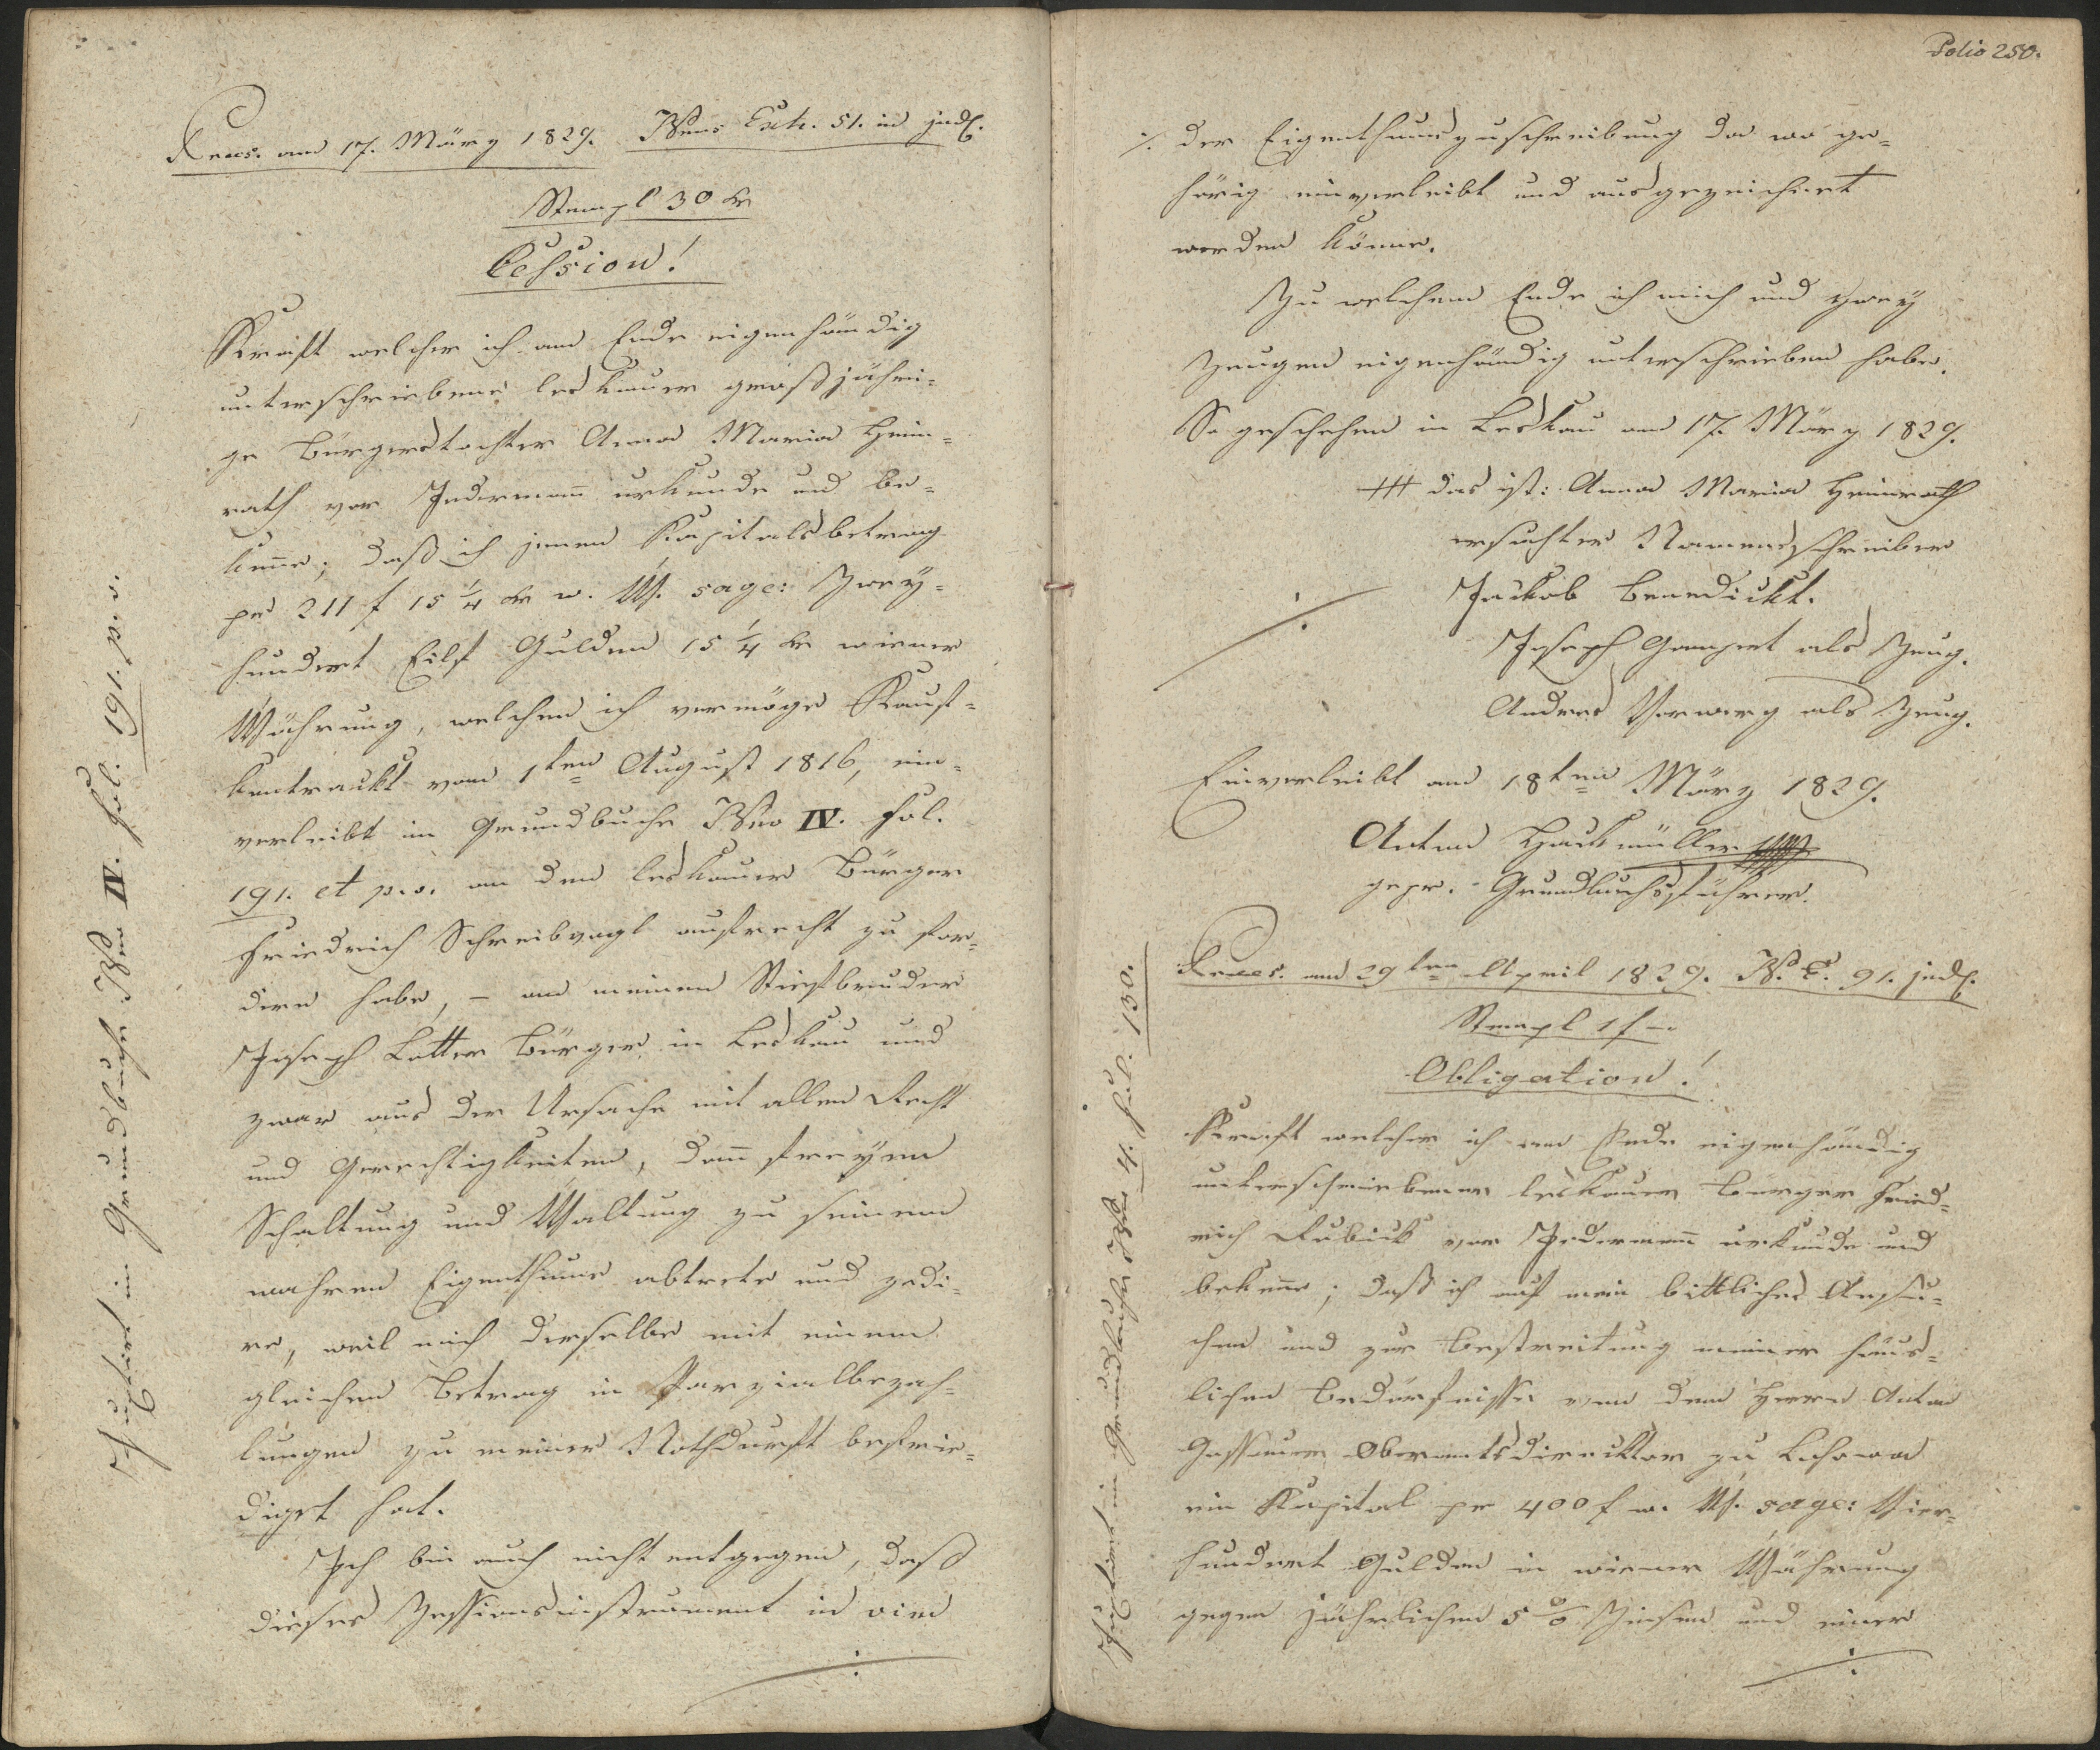 Præs. am 17. März 1829. NEus Exh. 51. in judl.
Stempl 30 kr
Cession!
Kraft welcher ich am Ende eigenhändig
unterschriebene leskauer großjähri-
ge Bürgerstochter Anna Maria Heim-
rath vor Jedermann urkunde und be-
kenne; daß ich jenen Kapitalsbetrag
pr 211 f 15 1/4 kr w. W. sage: Zwey-
hundert Eilf Gulden 15 1/4 kr wiener
Währung, welchen ich vermöge Kauf-
kontrackt vom 1ten August 1816, ein-
verleibt im Grundbuche Nro IV. fol.
191. et p.v. an den leskauer Bürger
Friedrich Schreibvogl aufrecht zu for-
dern habe, – an meinen Stiefbruder
Joseph Lotter Bürger in Leskau und
zwar aus der Ursache mit allen Recht
und Gerechtigkeiten, dann freyen
Schaltung und Waltung zu seinem
wahren Eigenthume abtrete und zedi-
re, weil mich derselbe mit einem
gleichen Betrag in Parzialbezah-
lungen zu meiner Nothdurft befrie-
diget hat.
Ich bin auch nicht entgegen, daß
dieses Zessionsinstrument in vim
./.
Justirt in Grundbuche Nro IV. fol. 191. p.v.
Folio 250.
./. der Eigenthumszuschreibung da wo ge-
hörig einverleibt und ausgezeichnet
werden könne.
Zu welchem Ende ich mich und zwey
Zeugen eigenhändig unterschrieben habe.
So geschehen in Leskau am 17. März 1829.
+++ das ist: Anna Maria Heimrath
ersuchter Namensschreiber
Jackob Benedickt.
./.
Joseph Gampert als Zeug.
Andreas Vorwerg als Zeug.
Einverleibt am 18ten März 1829.
Anton Hackmüller
gepr. Grundbuchsführer.
Præs. am 29ten April 1829. N. E. 91. judl.
Stempl 1 f –
Obligation!
Kraft welcher ich am Ende eigenhändig
unterschriebener leskauer Bürger Fried-
rich Kubick vor Jedermann urkunde und
bekenne; daß ich auf mein bittliches Ansu-
chen und zur Bestreitung meiner häus-
lichen Bedürfnisse von dem Herrn Anton
Gassauer Oberamtsdirecktor zu
ein Kapital pr 400 f w. W. sage: Vier-
hundert Gulden in wiener Währung
gegen jährlichen 5 % Zinsen und einer
./.
Justirt im Grundbuche Nro 4. fol. 130.